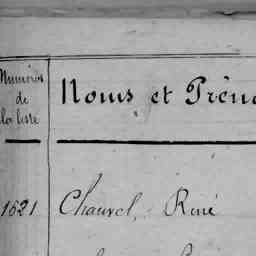 Numéros
de
la liste
Noms et Préno
1621 Chauvel, René